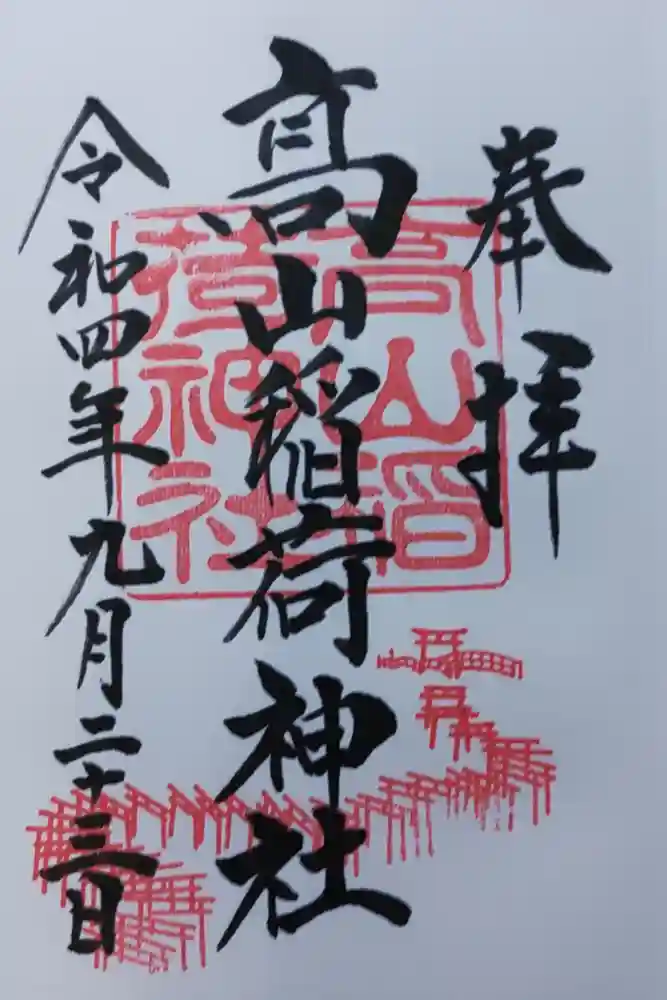 奉拝
高山稲荷神社
令和四年九月二十三日
高山稲
荷神社